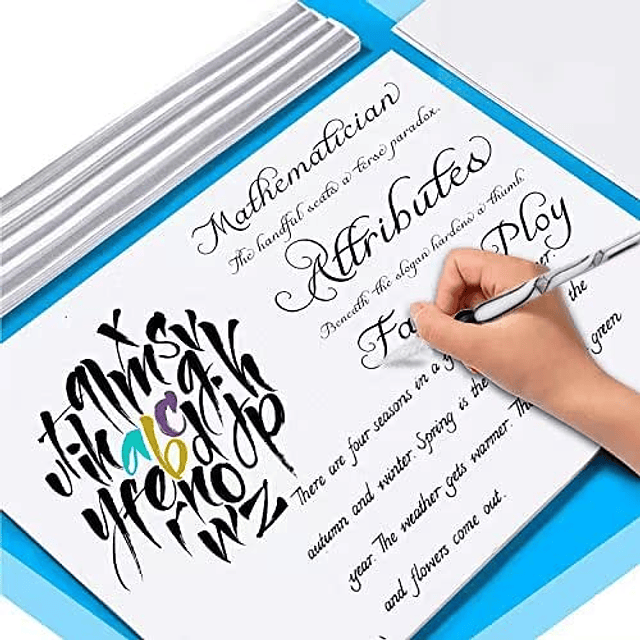 Mathematician
The handful seats a terse paradox.
Attributes
Beneath the slogan hardens a thumb.
Ploy
There are four seasons in a
autumn and winter. Spring is the the
year. The weather gets warmer. green
and flowers come out.
x s v
q l m g. h
t i k a b c d j p
y f e n o
r w z